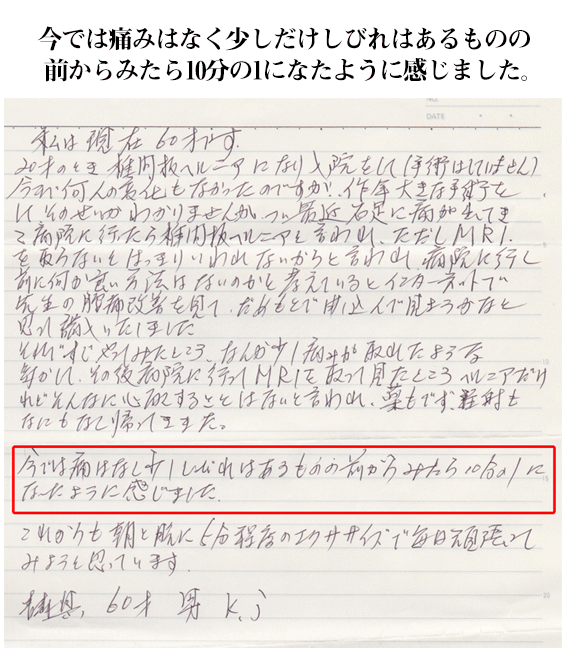 今では痛みはなく少しだけしびれはあるものの
前からみたら10分の1になたように感じました。
NO.
DATE
私は現在60才です.
20才のとき椎間板ヘルニアになり入院をして(手術はしていません)
今まで何人の変化もなかったのですが、昨年大きな手術を
して、そのせいかわかりませんが、つい最近右足に痛が出てき
て病院に行たら椎間板ヘルニアと言われ、ただしMRI.
を取らないとはっきりいわれないからと言われ、病院に行く
前に何か良い方法はないのかと考えているとインターネットで
先生の腰痛改善を見て、だめもとで申込んで見ようかなと
思って購入いたしました
それですじやってみたところ、なんか少し痛みが取れたような
気がして、その後病院に行ってMRIを取って見たところヘルニアだけ
れどそんなに心配することはないと言われ、薬もでず、注射も
なにもなく帰ってきました。
今では痛はなし少ししびれはあるものの前からみたら10分の1に
なったように感じました.
これからも朝と晩に5分程度のエクササイズで毎日頑張って
みようと思っています.
60才 男 K.j